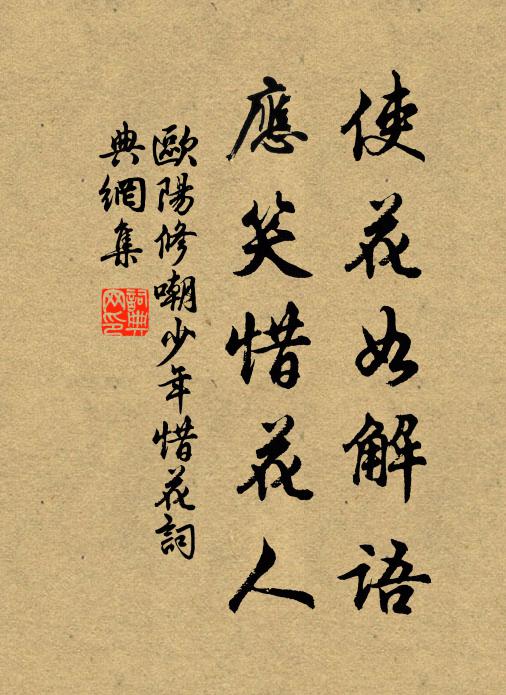 使花如解語
應笑惜花人
歐陽修嘲少年惜花詞
典網集
詞典
網印